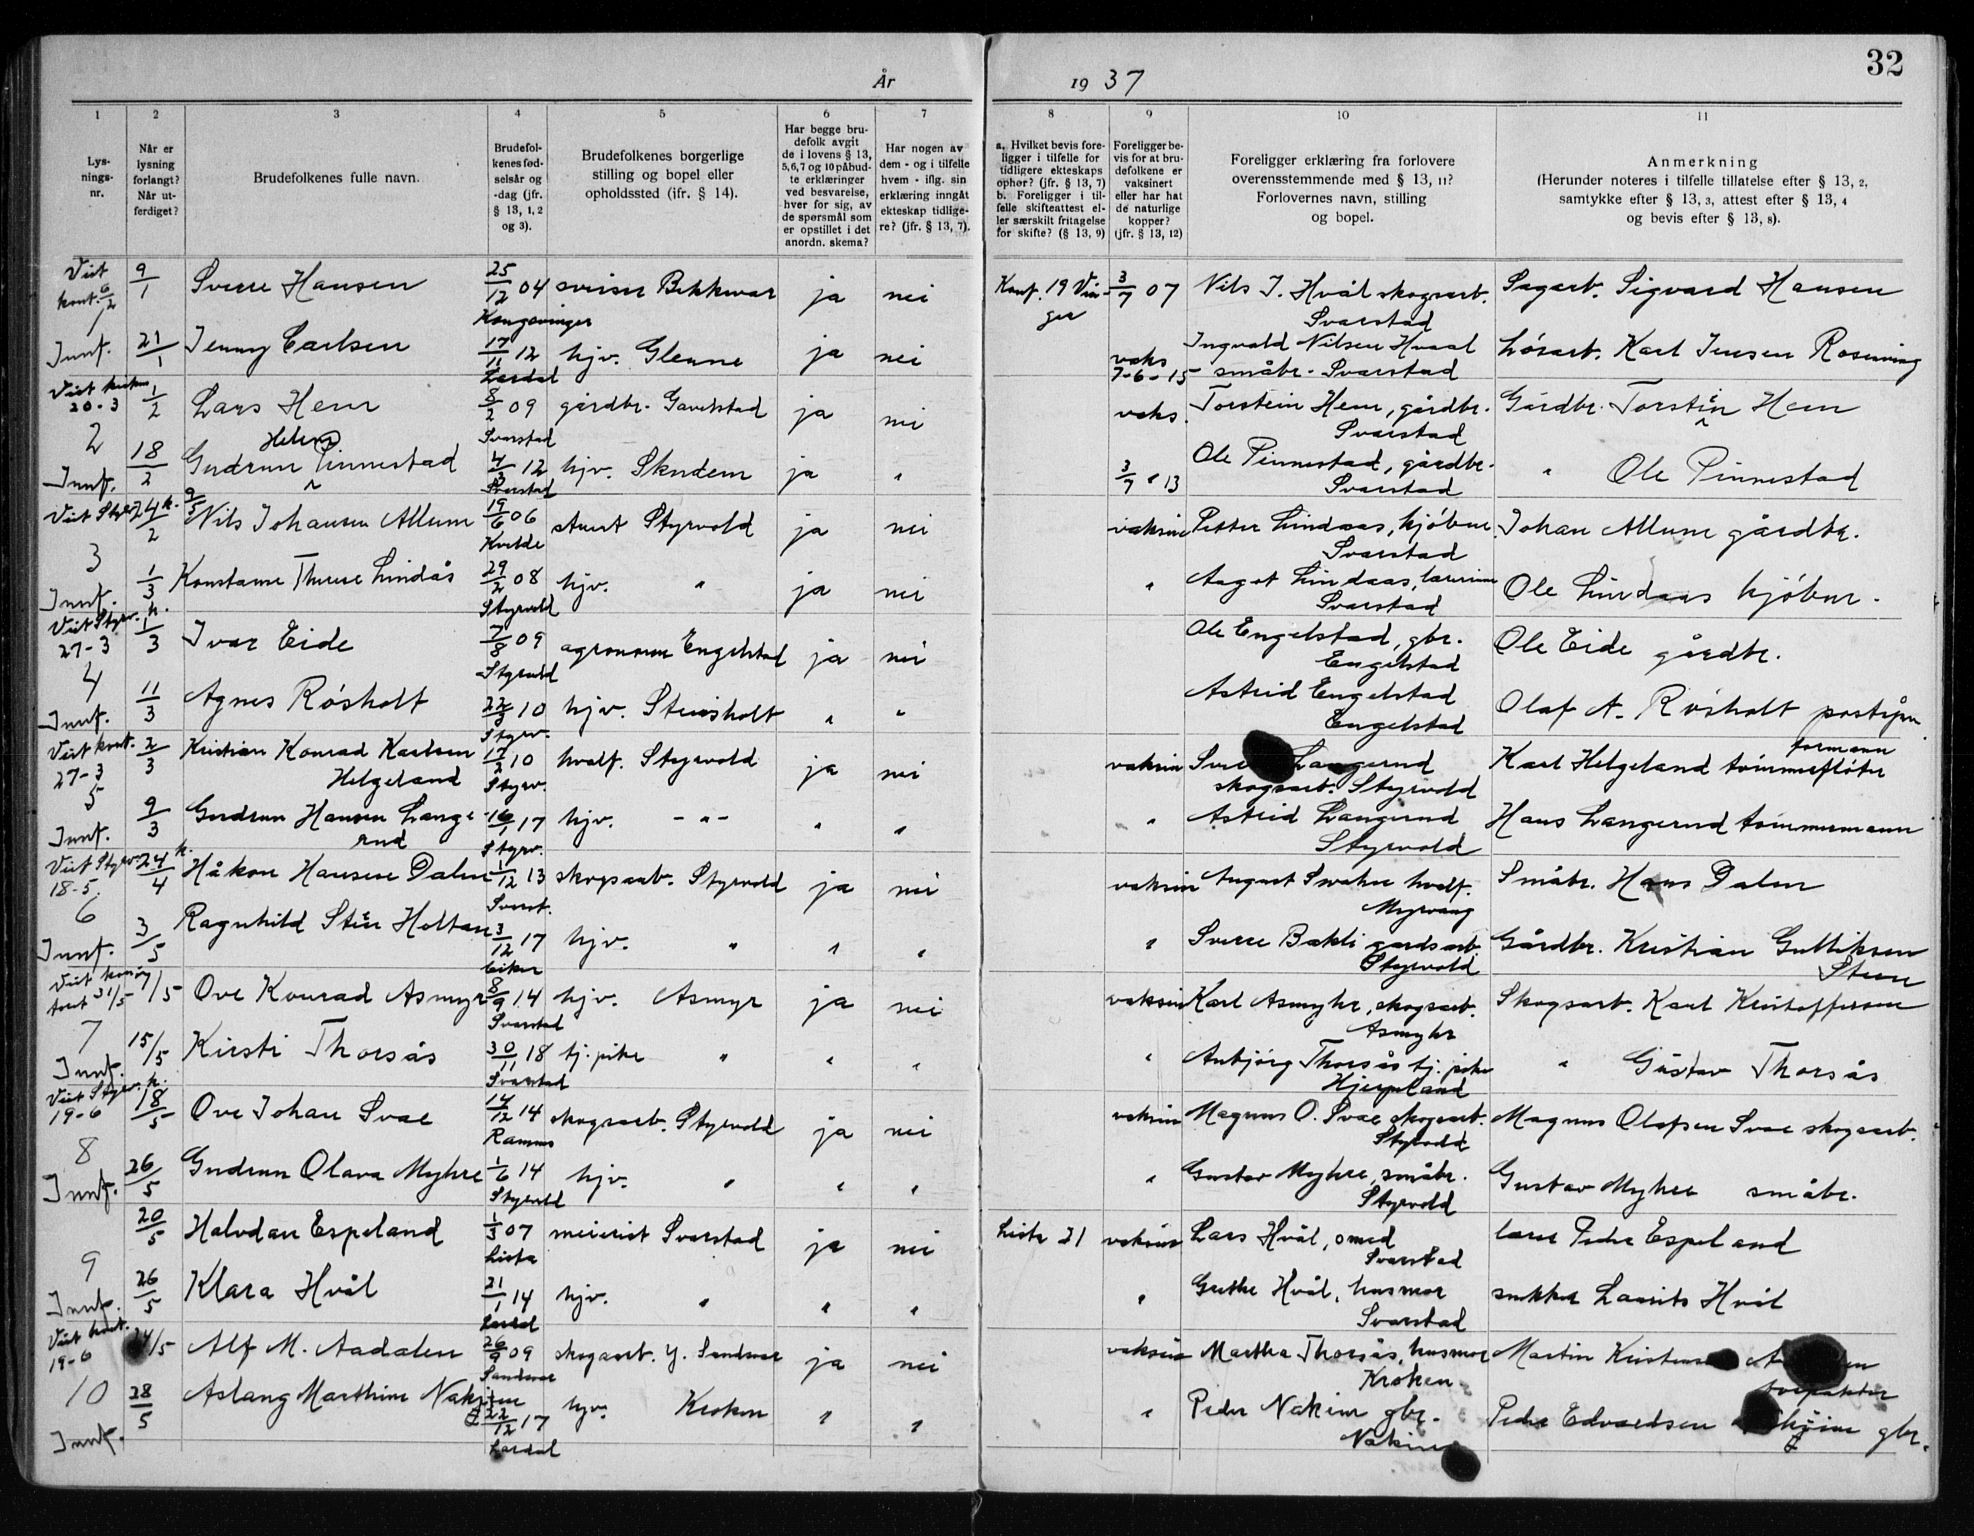 32
År 1937
1 2 3 4 5 6 7 8 9 10 11
Lys-
nings-
nr.
Når er
lysning
forlangt?
Når ut-
ferdiget?
Brudefolkenes fulle navn.
Brudefol-
kenes fød-
selsår og
-dag (jfr.
§ 13, 1, 2
og 3).
Brudefolkenes borgerlige
stilling og bopel eller
opholdssted (jfr. § 14).
Har begge bru-
defolk avgit
de i lovens § 13,
5,6,7 og 10 påbud-
te erklæringer
ved besvarelse,
hver for sig, av
de spørsmål som
er opstillet i det
anordn. skema?
Har nogen av
dem - og i tilfelle
hvem - iflg. sin
erklæring inngåt
ekteskap tidlige-
re? (jfr. § 13, 7).
a. Hvilket bevis fore-
ligger i tilfelle for
tidligere ekteskaps
ophør? (jfr. § 13, 7)
b. Foreligger i til-
felle skifteattest el-
ler særskilt fritagelse
for skifte? (§ 13, 9)
Foreligger be-
vis for at bru-
defolkene er
vaksinert
eller har hat
de naturlige
kopper?
(jfr. § 13, 12)
Foreligger erklæring fra forlovere
overensstemmende med § 13, 11?
Forlovernes navn, stilling
og bopel.
Anmerkning
(Herunder noteres i tilfelle tillatelse efter § 13, 2,
samtykke efter § 13, 3, attest efter § 13, 4
og bevis efter § 13, 8).
Viet kont. 6/2 9/1 Sverre Hansen 25/12 04 sveiser Bekkevar ja nei Konf. 19 Vin- 3/7 07 Nils J. Hvål skogsarb. Sagarb. Sigvard Hansen
1 Kongsvinger ger Svarstad
Innf. 21/1 Jenny Carlsen 17/11 12 hjv. Glenne ja nei vaks 7-6-15 Ingvald Nilsen Hvaal Løsarb. Karl Jensen Rosenving
Lardal småbr. Svarstad
Viet kirken 20-3 1/2 Lars Hem 8/2 09 gårdbr. Gavelstad ja nei vaks. Torstein Hem, gårdbr. Gårdbr. Torstein Hem
2 Svarstad Svarstad
Innf. 18/2 Gudrun Helene Pinnestad 4/3 12 hjv. Skndem ja " 3/7 13 Ole Pinnestad, gårdbr. " Ole Pinnestad
Svarstad Svarstad
Viet Styrv. k. 9/5 24/2 Nils Johansen Allum 19/6 06 Styrvold ja nei vaksine Petter Lindaas, kjøbm. Johan Allum gårdbr.
3 Kvelde Svarstad
Innf. 1/3 Konstanse Therese Lindås 29/2 08 hjv. " ja nei " Aagot Lindaas, lærerinne Ole Lindaas kjøbm.
Styrvold Svarstad
Viet Styrv. k. 27-3 1/3 Ivar Eide 7/8 09 agronom Engelstad ja nei Ole Engelstad, gbr. Ole Eide gårdbr.
4 Styrvold Engelstad
Innf. 11/3 Agnes Røsholt 22/3 10 hjv. Steinsholt " " Astrid Engelstad Olaf A. Røsholt poståpn.
Styrv. Engelstad
Viet kont. 27-3 2/3 Kristian Konrad Karlsen 17/2 10 hvalf. Styrvold ja nei vaksin Langerud Karl Helgeland tømmerfløter
5 Helgeland Styrv. skogsarb. Styrvold formann
Innf. 9/3 Gudrun Hansen Lange- 16/1 17 hjv. -"- " " " Astrid Langerud Hans Langerud tømmermann
rud Styrv. Styrvold
Viet Styrv. k. 18-5. 24/4 Håkon Hansen Dalen 1/12 13 skogsarb. Styrvold ja nei vaksin August Svahn hvalf. Småbr. Hans Dalen
6 Svarst. Myrvang
Innf. 3/5 Ragnhild Steen Holtan 3/12 17 hjv. " " " " Sverre Bakli gardsarb Gårdbr. Kristian Gulliksen
Eiker Styrvold Steen
Viet kontoret 31/5 7/5 Ove Konrad Asmyr 8/9 14 hjv. Asmyr ja nei vaksin Karl Asmyhr, skogsarb. Skogsarb. Karl Kristoffersen
7 Svarstad Asmyhr
Innf. 15/5 Kirsti Thorsås 30/11 18 tj.pike " " " " Anbjørg Thorsås tj. pike " Gustav Thorsås
Svarstad Hjerpeland
Viet Styrv. k. 19-6 18/5 Ove Johan Svae 14/12 14 skogsarb. Styrvold ja nei vaksin Magnus O. Svae skogsarb. Magnus Olafsen Svae skogsarb.
8 Ramnes Styrvold
Innf. 26/5 Gudrun Olava Myhre 1/6 14 hjv. " " " " Gustav Myhre, småbr. Gustav Myhre småbr.
Styrvold Styrvold
20/5 Halvdan Espeland 1/3 07 meierist Svarstad ja nei Lista 21 vaksin Lars Hvål, smed lærer Peder Espeland
9 Lista Svarstad
Innf. 26/5 Klara Hvål 21/1 14 hjv. " " " " Grethe Hvål, husmor snekker Laurits Hvål
Lardal Svarstad
Viet kont. 19-6 24/5 Alf M. Aadalen 26/9 09 skogsarb. y. Sandsvær ja nei vaksin Martha Thorsås, husmor Martin Kristensen
10 Sandsvær Kroken
Innf. 28/5 Aslaug Marthine Nakjem 22/12 17 hjv. Kroken " " " Peder Nakjem gbr. Peder Edvardsen gbr.
Lardal